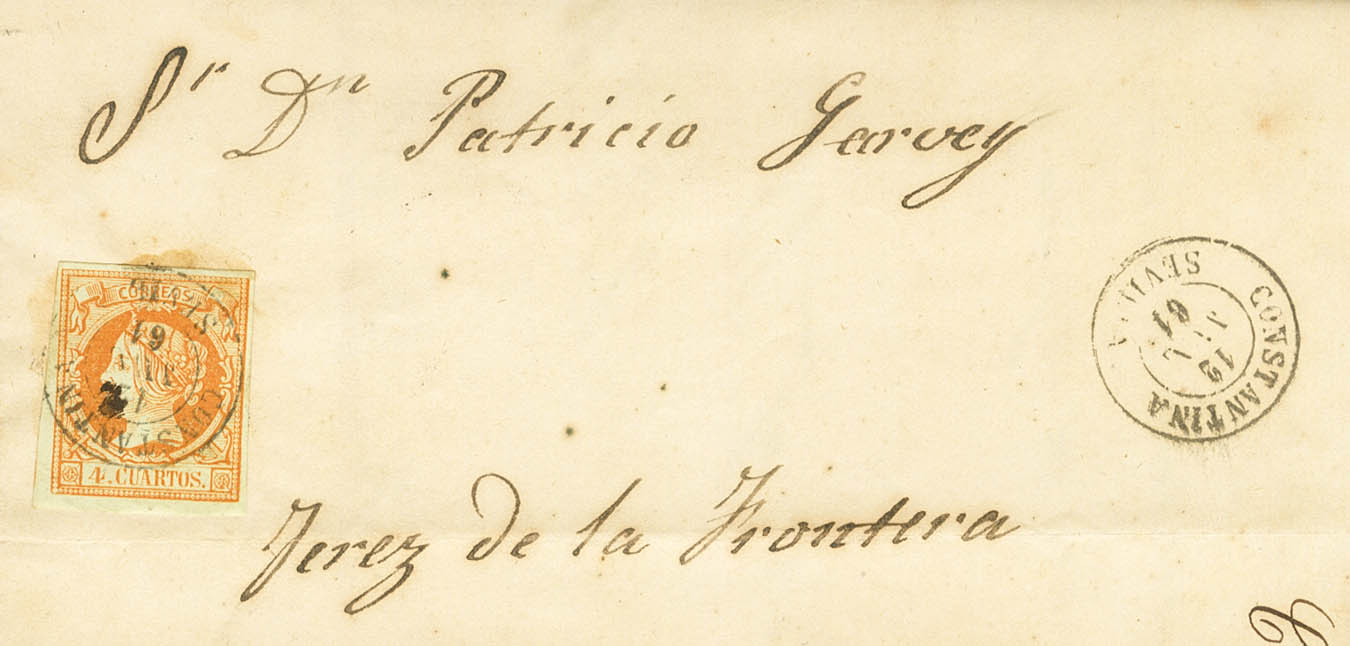 Sr Dn Patricio Garvey
CORREOS
61
4. CUARTOS.
CONSTANTINA
SEVILLA
12
JUL
61
Jerez de la Frontera